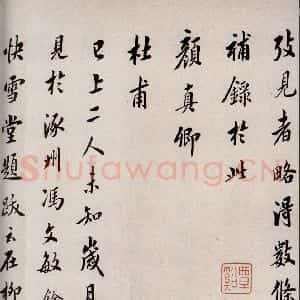 攷見者略得數條
補錄於此
顏真卿
杜甫
已上二人未知歲月
見於涿州馮文敏銓
快雪堂題跋云在柳
Shufawang.CN